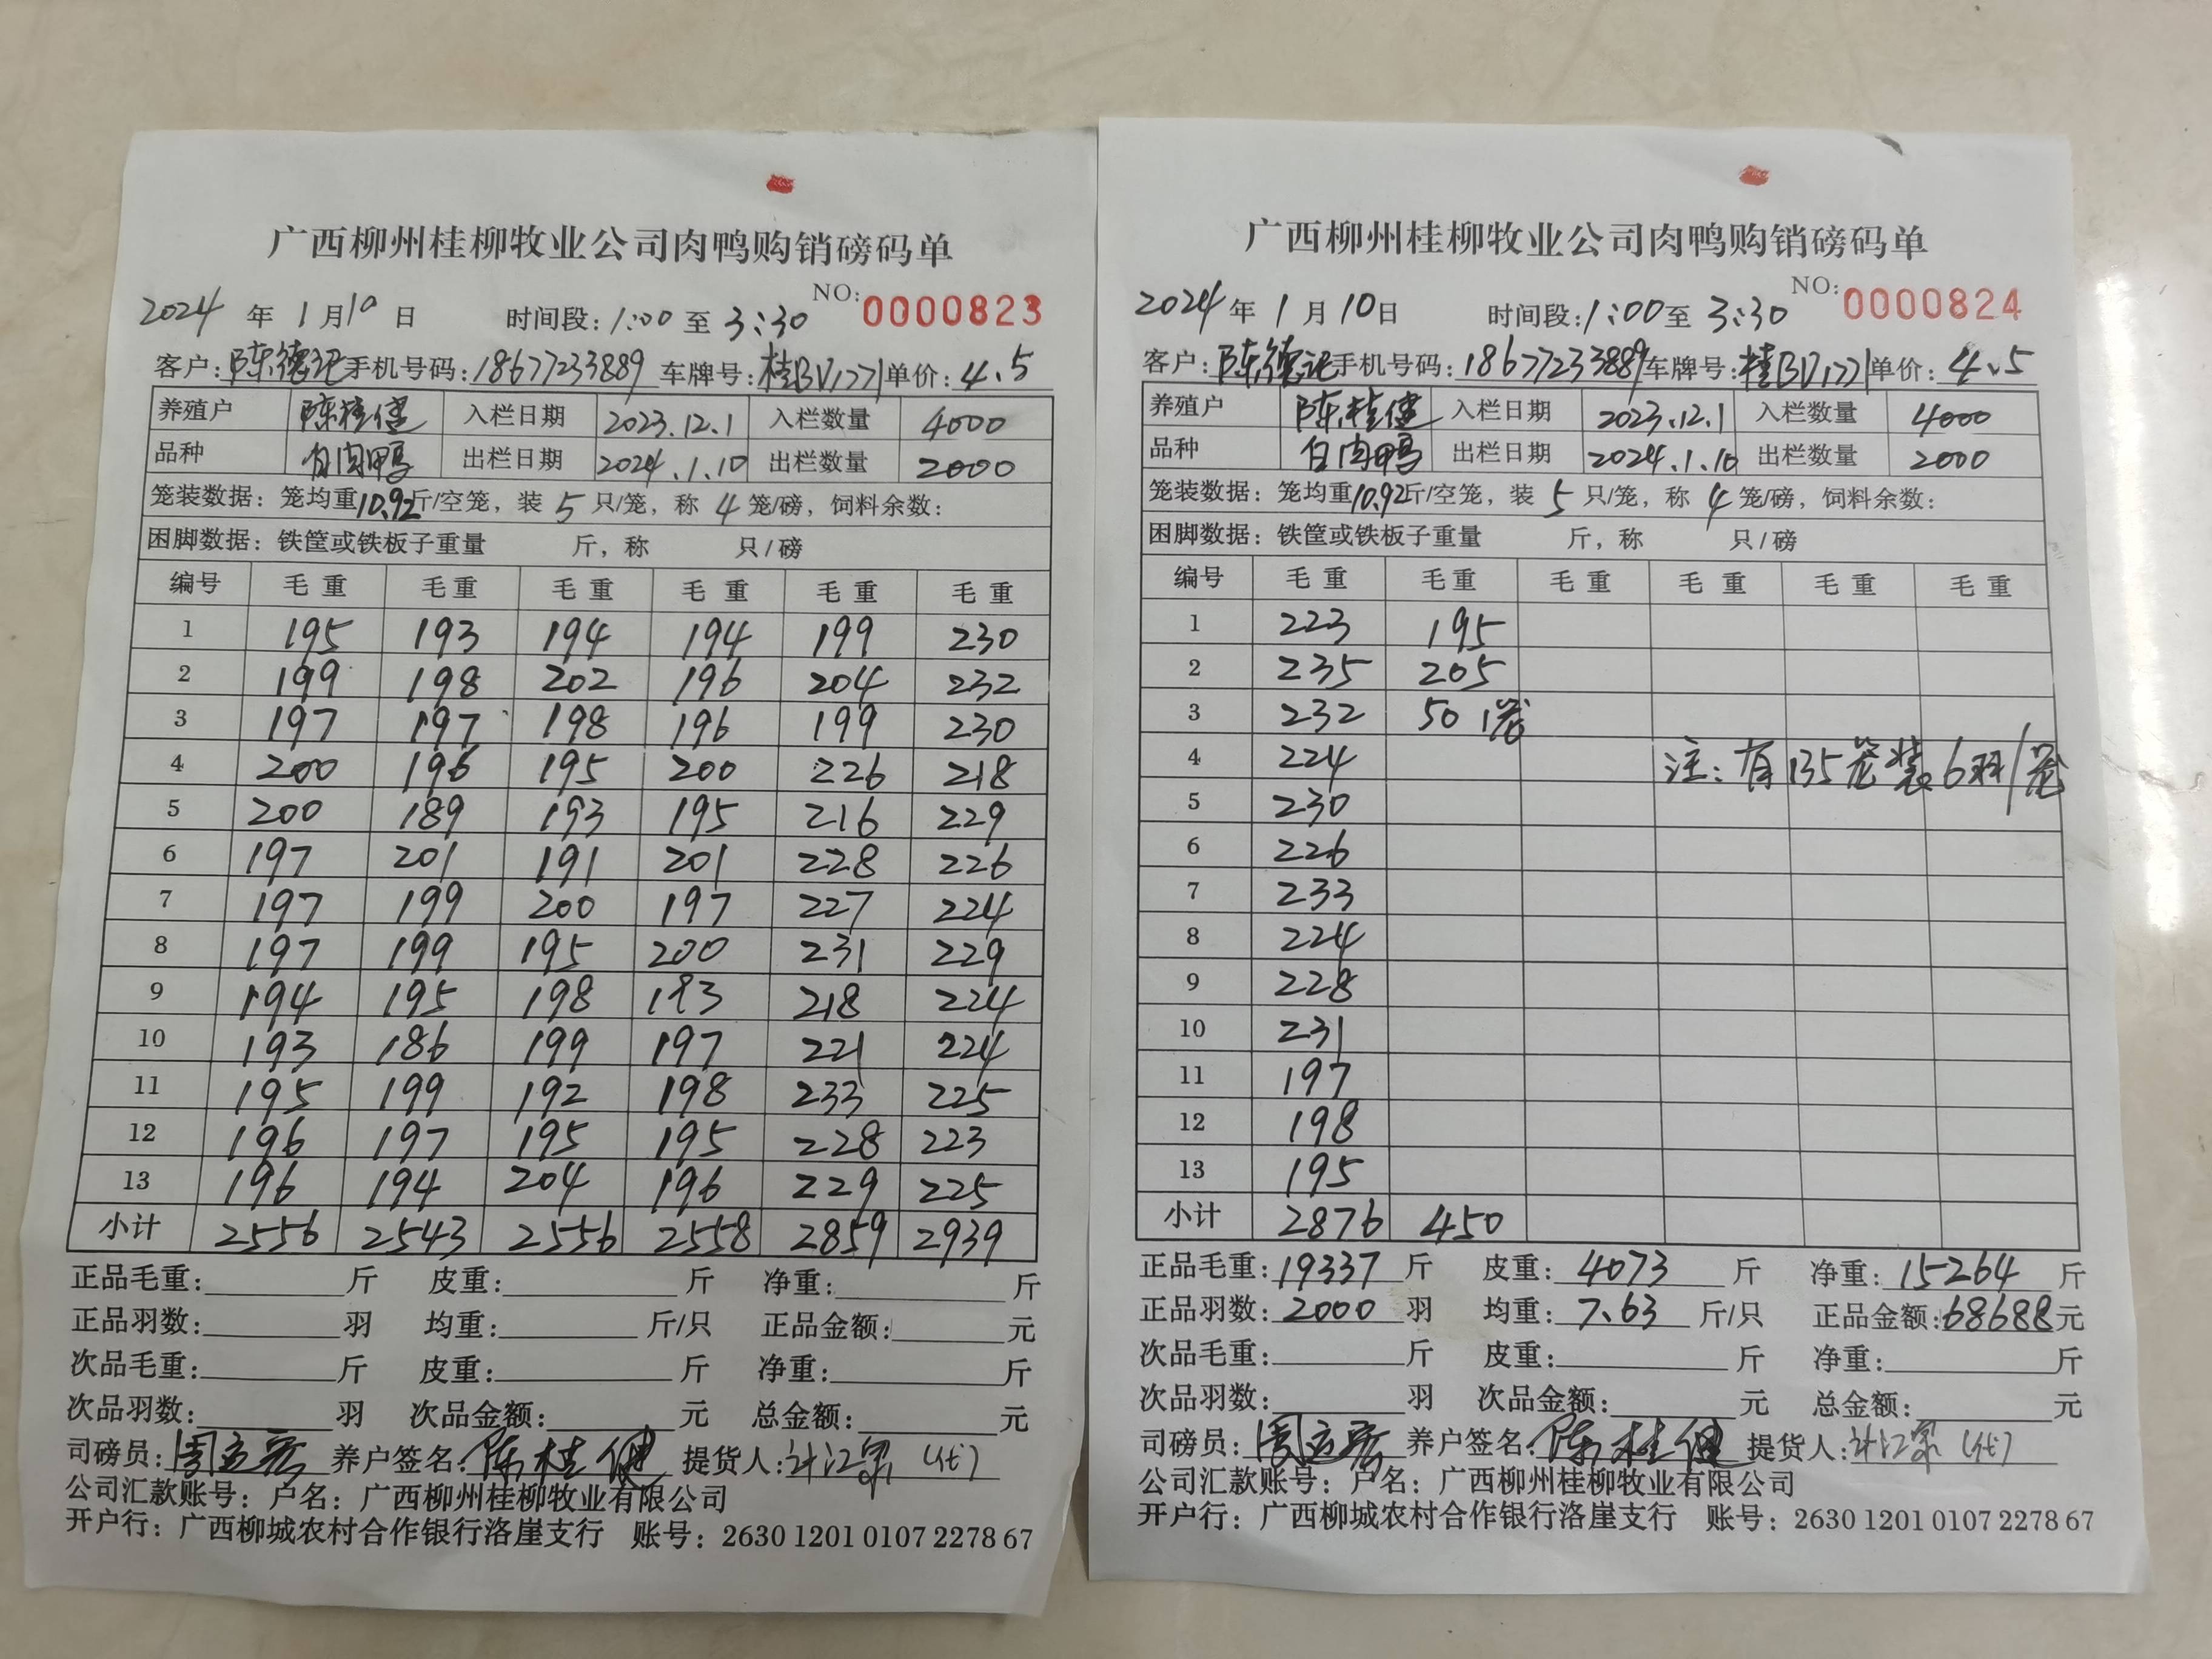 广西柳州桂柳牧业公司肉鸭购销磅码单
NO: 0000823
2024 年 1 月 10 日 时间段: 1:00 至 3:30
客户: 陈德记 手机号码: 18677233889 车牌号: 桂BV1771 单价: 4.5
养殖户 陈桂健 入栏日期 2023.12.1 入栏数量 4000
品种 白肉鸭 出栏日期 2024.1.10 出栏数量 2000
笼装数据: 笼均重 10.92 斤/空笼, 装 5 只/笼, 称 4 笼/磅, 饲料余数:
困脚数据: 铁筐或铁板子重量 斤, 称 只/磅
编号 毛重 毛重 毛重 毛重 毛重 毛重
1 195 193 194 194 199 230
2 199 198 202 196 204 232
3 197 197 198 196 199 230
4 200 196 195 200 226 218
5 200 189 193 195 216 229
6 197 201 191 201 228 226
7 197 199 200 197 227 224
8 197 199 195 200 231 229
9 194 195 198 193 218 224
10 193 186 199 197 221 224
11 195 199 192 198 233 225
12 196 197 195 195 228 223
13 196 194 204 196 229 225
小计 2556 2543 2556 2558 2859 2939
正品毛重: 斤 皮重: 斤 净重: 斤
正品羽数: 羽 均重: 斤/只 正品金额: 元
次品毛重: 斤 皮重: 斤 净重: 斤
次品羽数: 羽 次品金额: 元 总金额: 元
司磅员: 养户签名: 陈桂健 提货人: (代)
公司汇款账号: 户名: 广西柳州桂柳牧业有限公司
开户行: 广西柳城农村合作银行洛崖支行 账号: 2630 1201 0107 2278 67
广西柳州桂柳牧业公司肉鸭购销磅码单
NO: 0000824
2024 年 1 月 10 日 时间段: 1:00 至 3:30
客户: 陈德记 手机号码: 18677233889 车牌号: 桂BV1771 单价: 4.5
养殖户 陈桂健 入栏日期 2023.12.1 入栏数量 4000
品种 白肉鸭 出栏日期 2024.1.10 出栏数量 2000
笼装数据: 笼均重 10.92 斤/空笼, 装 5 只/笼, 称 4 笼/磅, 饲料余数:
困脚数据: 铁筐或铁板子重量 斤, 称 只/磅
编号 毛重 毛重 毛重 毛重 毛重 毛重
1 223 195
2 235 205
3 232 50 1笼
4 224 注: 有135笼装6羽/笼
5 230
6 226
7 233
8 224
9 228
10 231
11 197
12 198
13 195
小计 2876 450
正品毛重: 19337 斤 皮重: 4073 斤 净重: 15264 斤
正品羽数: 2000 羽 均重: 7.63 斤/只 正品金额: 68688 元
次品毛重: 斤 皮重: 斤 净重: 斤
次品羽数: 羽 次品金额: 元 总金额: 元
司磅员: 养户签名: 陈桂健 提货人: (代)
公司汇款账号: 户名: 广西柳州桂柳牧业有限公司
开户行: 广西柳城农村合作银行洛崖支行 账号: 2630 1201 0107 2278 67